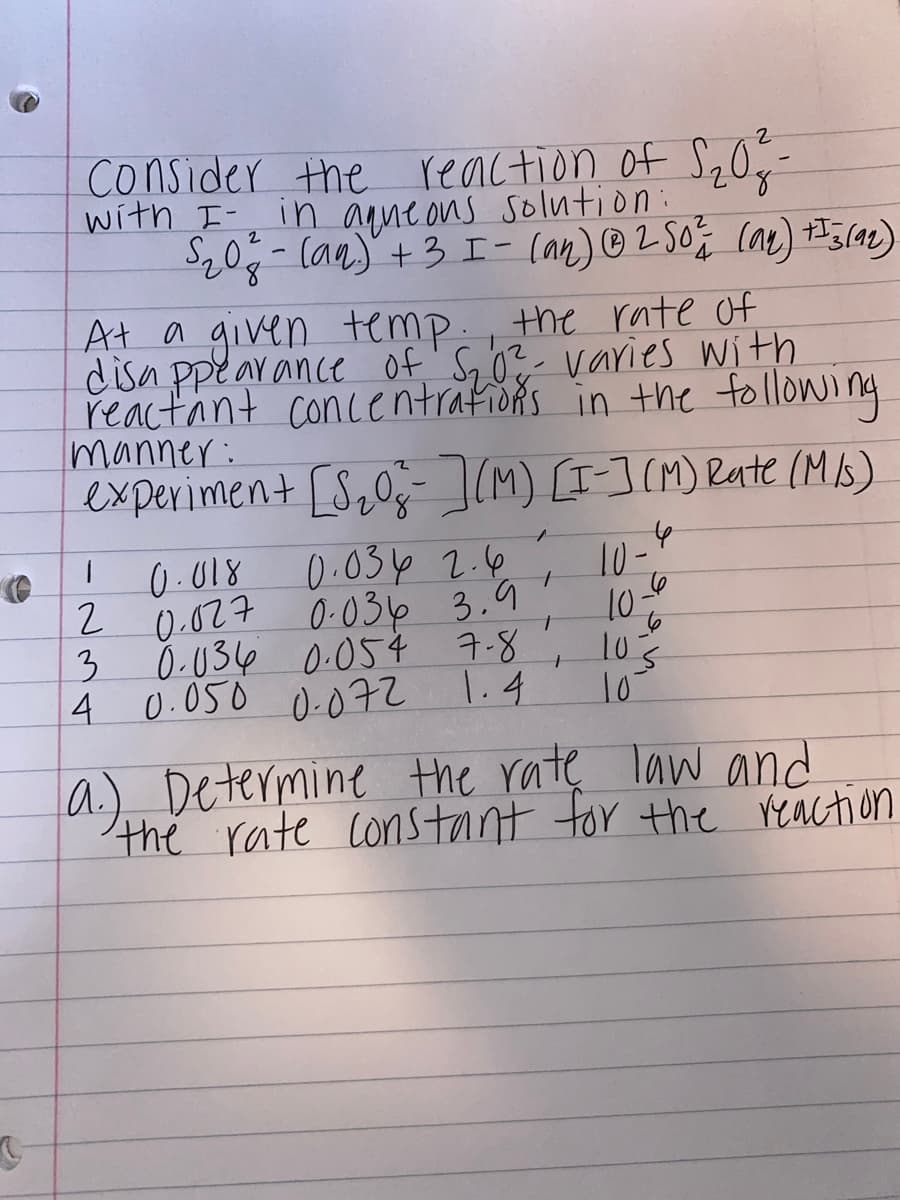 Consider the reaction of S₂O₈²-
with I- in aqueous solution:
S₂O₈²- (aq) + 3 I- (aq) ® 2 SO₄² (aq) + I₃⁻(aq)
At a given temp., the rate of
disappearance of S₂O₈²- varies with
reactant concentrations in the following
manner:
experiment [S₂O₈²-](M) [I-](M) Rate (M/s)
1 0.018 0.036 2.6 ' 10-⁶
2 0.027 0.036 3.9 ' 10-⁶
3 0.036 0.054 7.8 ' 10-⁶
4 0.050 0.072 1.4 ' 10-⁵
a.) Determine the rate law and
the rate constant for the reaction